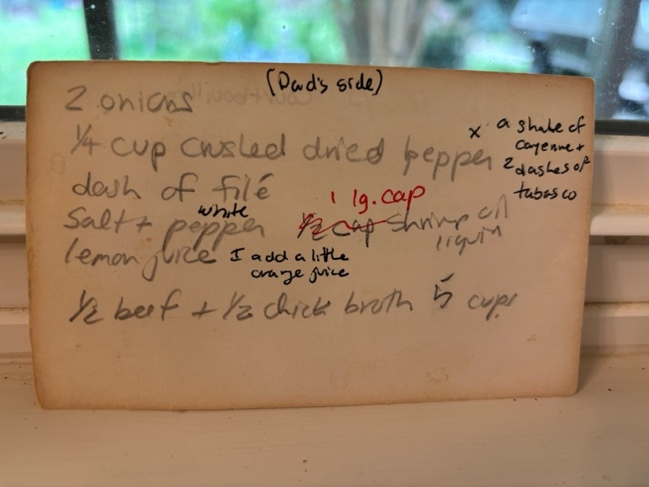 (Dad's side)
2 onions
1/4 cup crushed dried pepper
x a shake of
cayenne +
2 dashes of
tabasco
dash of filé
1 lg. cap
white
Salt + pepper 1/2 cap shrimp oil
liquid
lemon juice I add a little
orange juice
1/2 beef + 1/2 chick broth 5 cups